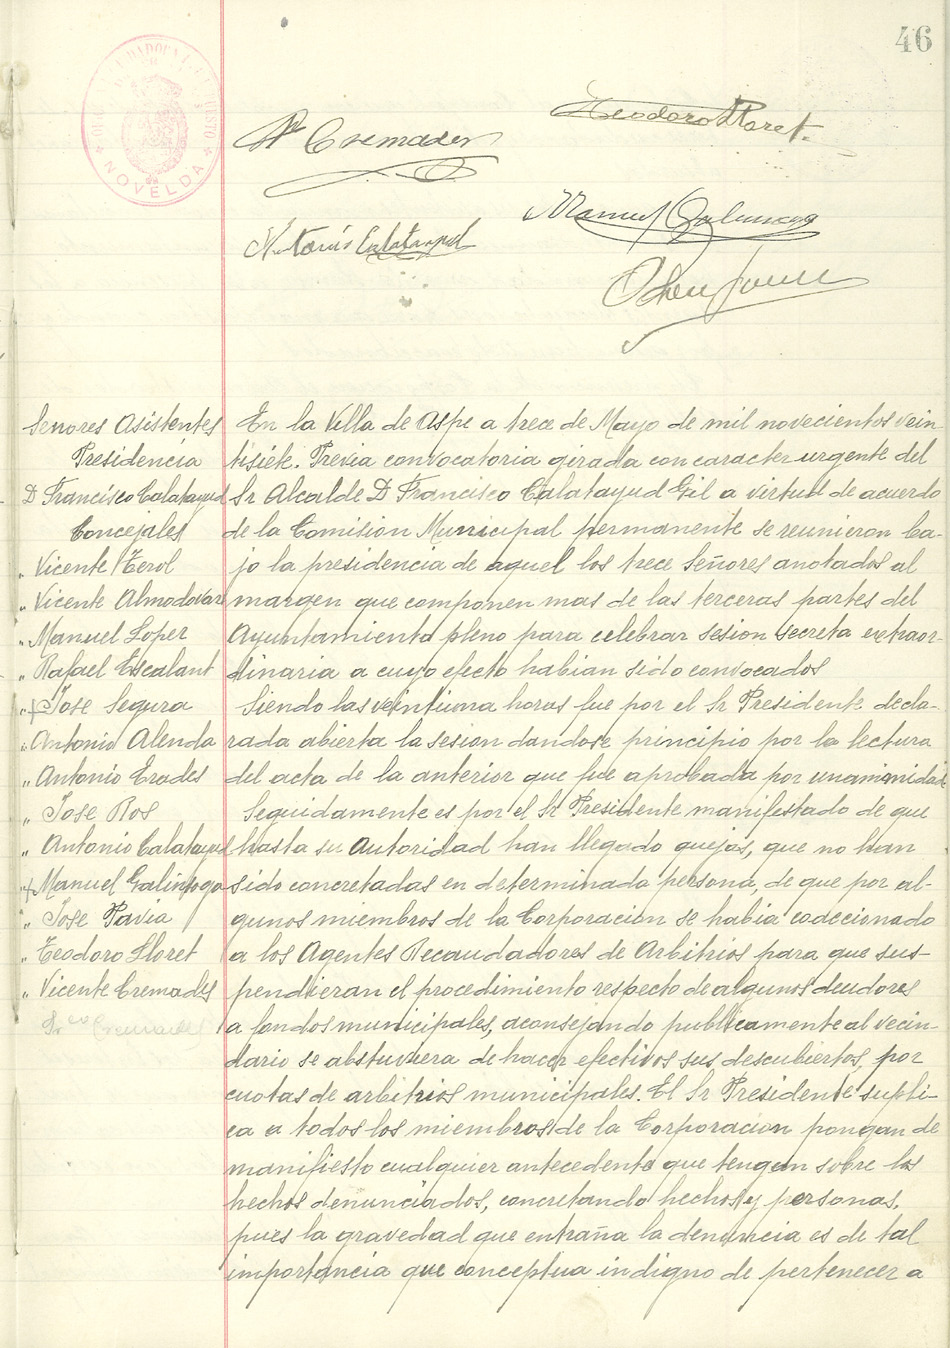 46
NOVELDA
Vte Cremades
Teodoro Lloret.
Antonio Calatayud
Señores Asistentes
Presidencia
D Francisco Calatayud
Concejales
" Vicente Terol
" Vicente Almodovar
" Manuel Lopez
" Rafael Escalant
" Jose Segura
" Antonio Alenda
" Antonio Erades
" Jose Ros
" Antonio Calatayud
" Manuel Galinsoga
" Jose Pavia
" Teodoro Lloret
" Vicente Cremades
Srio Cremades
En la Villa de Aspe a trece de Mayo de mil novecientos vein-
tisiete. Previa convocatoria girada con caracter urgente del
Sr Alcalde D Francisco Calatayud Gil a virtud de acuerdo
de la Comision Municipal permanente se reunieron ba-
jo la presidencia de aquel los trece Señores anotados al
margen que componen mas de las terceras partes del
Ayuntamiento pleno para celebrar sesion secreta extraor-
dinaria a cuyo efecto habian sido convocados
Siendo las veintiuna horas fue por el Sr Presidente decla-
rada abierta la sesion dandose principio por la lectura
del acta de la anterior que fue aprobada por unanimidad
Seguidamente es por el Sr Presidente manifestado de que
hasta su Autoridad han llegado quejas, que no han
sido concretadas en determinada persona, de que por al-
gunos miembros de la Corporacion se habia coaccionado
a los Agentes Recaudadores de Arbitrios para que sus-
pendieran el procedimiento respecto de algunos deudores
a fondos municipales, aconsejando publicamente al vecin-
dario se abstuviera de hacer efectivos sus descubiertos, por
cuotas de arbitrios municipales. El Sr Presidente supli-
ca a todos los miembros de la Corporacion pongan de
manifiesto cualquier antecedente que tengan sobre los
hechos denunciados, concretando hechos y personas,
pues la gravedad que entraña la denuncia es de tal
importancia que conceptua indigno de pertenecer a